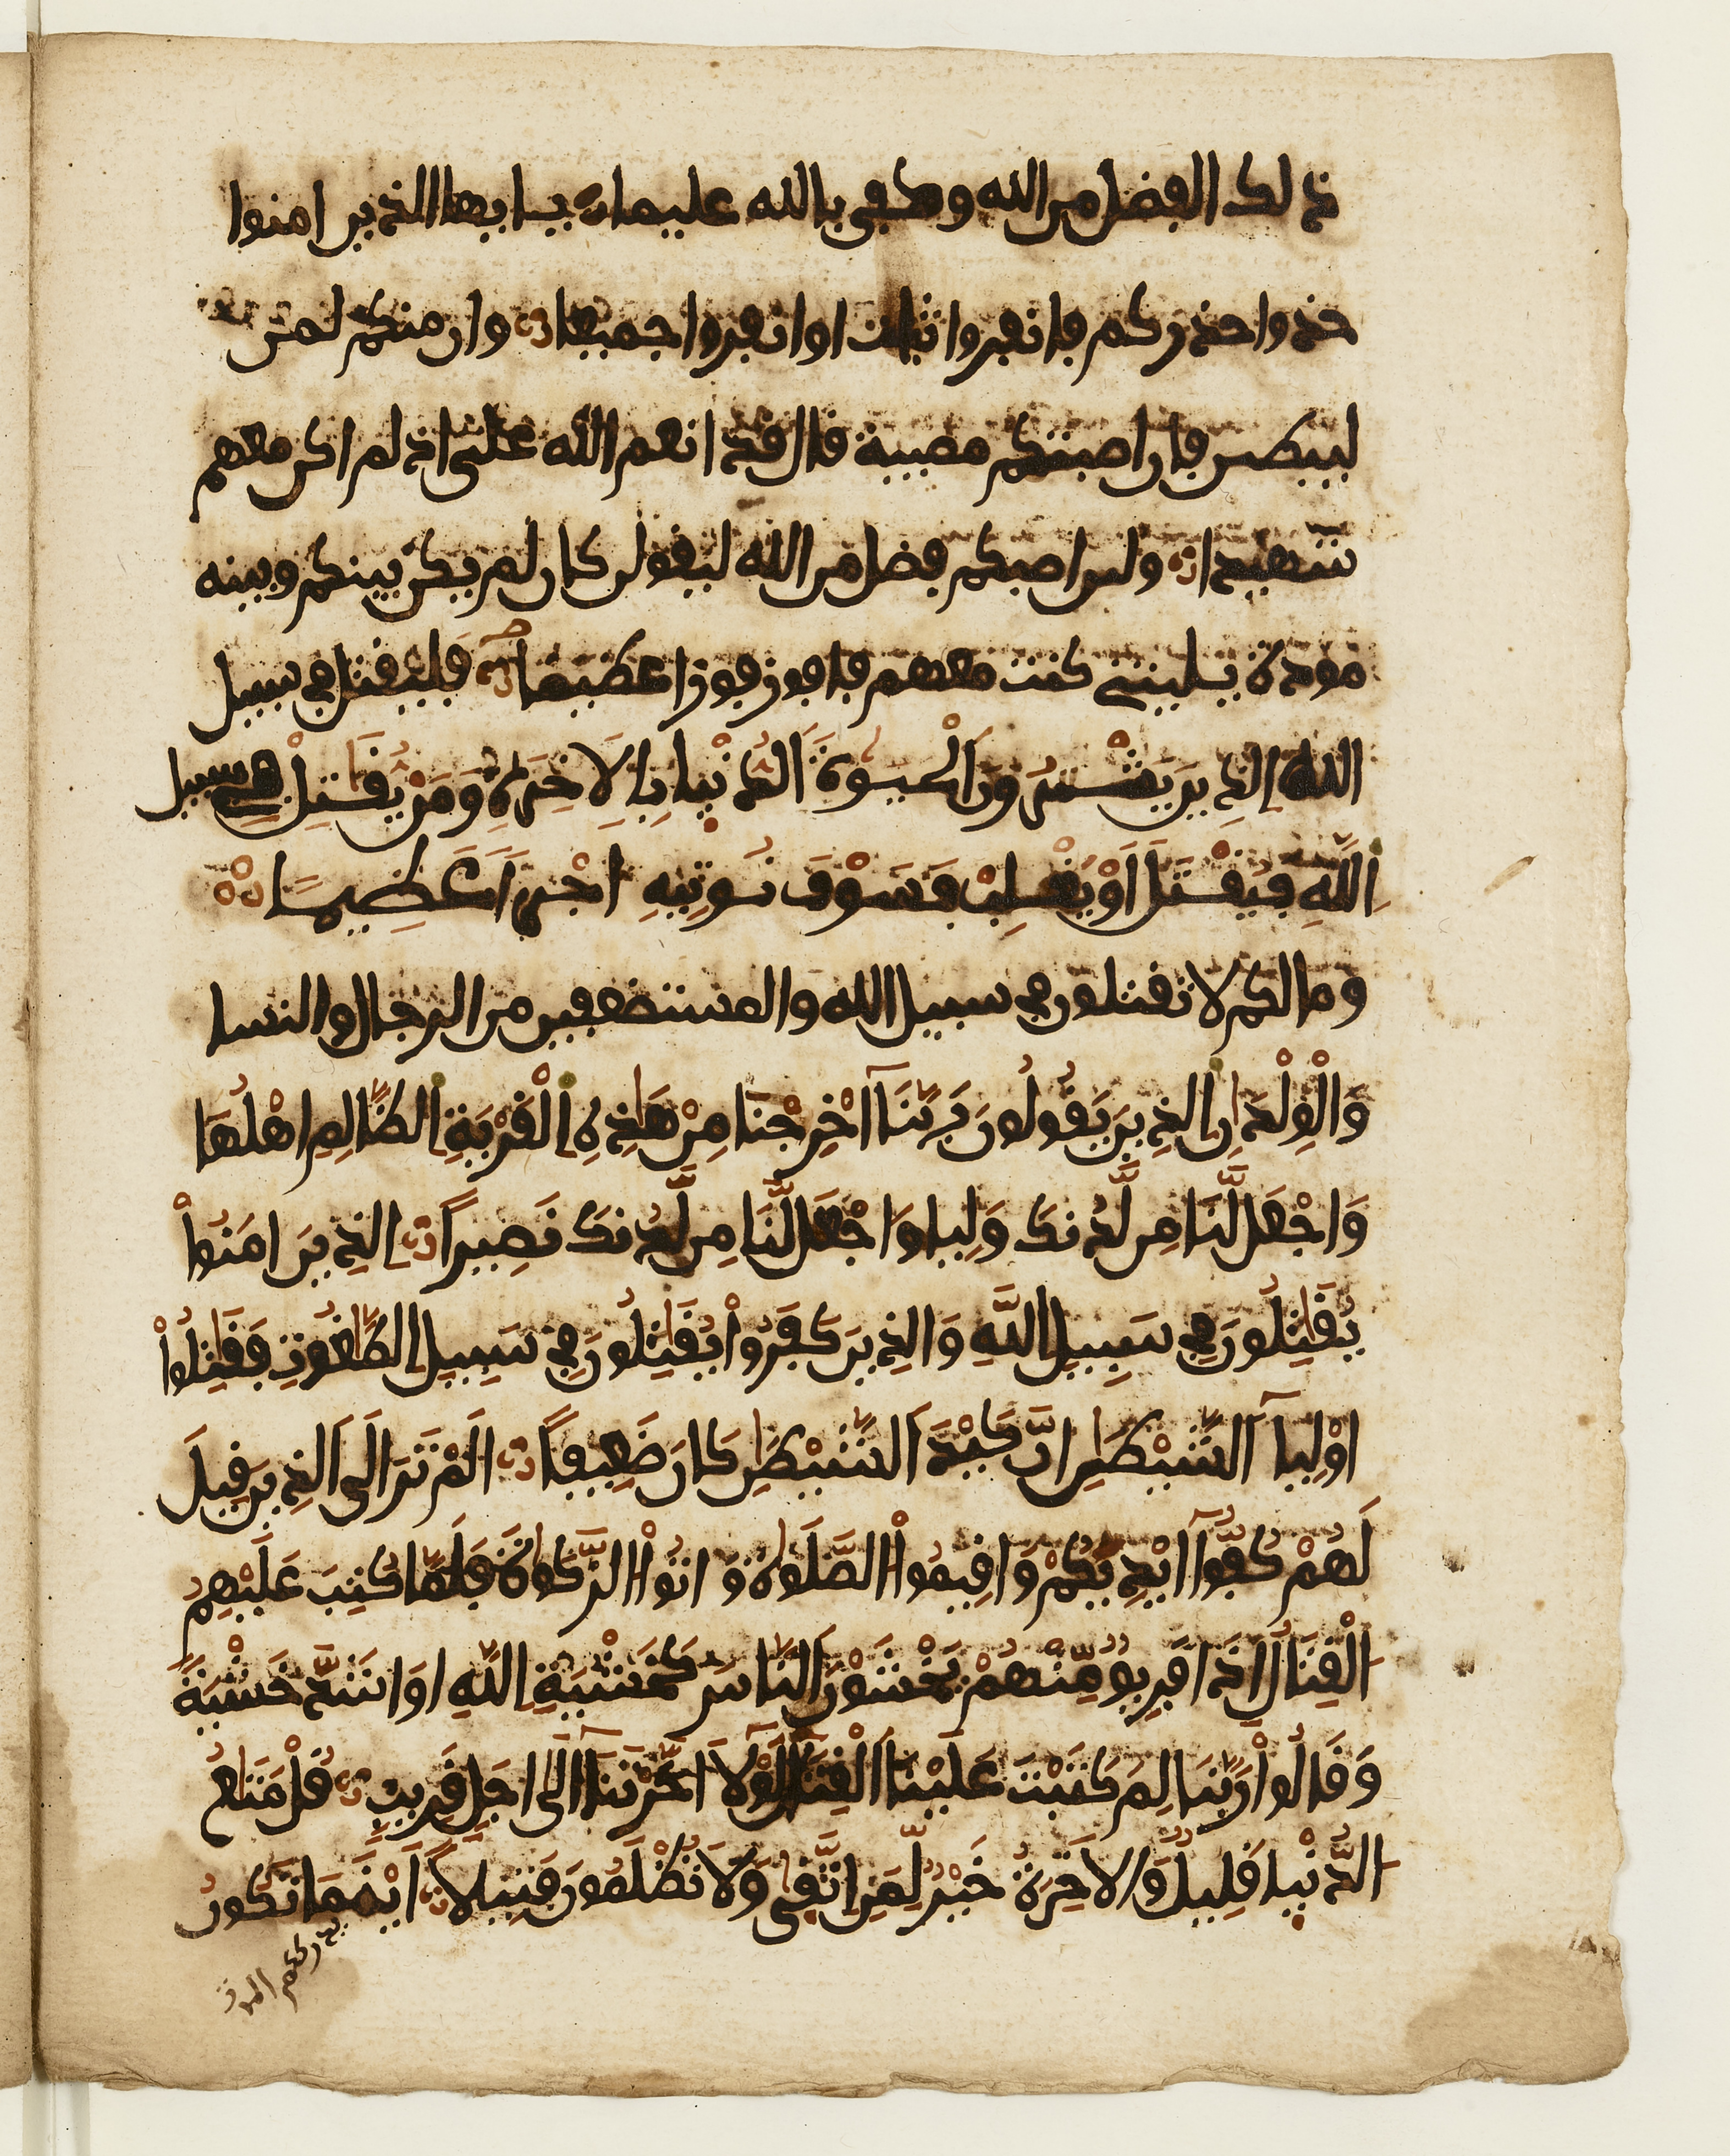 ذلك الفضل من الله وكفى بالله عليما يايها الذين امنوا
خذوا حذركم فانفروا ثبات او انفروا جميعا وان منكم لمن
ليبطين فان اصبتكم مصيبة قال قد انعم الله على اذ لم اكن معهم
شهيدا ولين اصبكم فضل من الله ليقولن كان لم يكن بينكم وبينه
مودة يليتنى كنت معهم فافوز فوزا عظيما فليقتل في سبيل
الله الذِينَ يَشْترُونَ الْحيوةَ الدُّنْيا بِالَاخِرَةِ وَمَنْ يُقَتِلْ في سبيل
اِللَّهِ فَيُقْتَلَ اَوْ يَغْلِبْ فَسَوْفَ نُوتِيهِ اجْراً عَظِيماً
وما لكم لا تقتلون في سبيل الله والمستضعفين من الرجال والنسا
وَالْوِلْدَانِ الذِينَ يَقُولُونَ رَبَّنَآ اَخْرِجْنا مِنْ هَاذِهِ اِلْقَرْيَةِ اِلظَّالِمِ اهْلُهَا
وَاجْعَل لَّنَا مِن لَّدُنكَ وَلِيا وَاجْعَل لَّنَا مِن لَّدُنكَ نَصِيراً الذِينَ امَنُواْ
يُقَاتِلُونَ فِي سَبِيلِ اِللَّهِ وَالذِينَ كَفَرُواْ يُقَاتِلُونَ فِي سَبِيلِ اِلطَّاغُوتِ فَقَاتِلُواْ
اوْلِيآ اَلشَّيْطَانِ اِنَّ كَيْدَ اَلشَّيْطَانِ كَانَ ضَعِيفاً الَمْ تَرَ الَى اَلذِينَ قِيلَ
لَهُمْ كُفُّوآ ايْدِيَكُمْ وَاقِيمُواْ الصَّلَوةَ وَاتُواْ الزَّكَوةَ فَلَمَّا كُتِبَ عَلَيْهِم
الْقِتَالُ اذَا فَرِيقٌ مِّنْهُمْ يَخْشَوْنَ اَلنَّاسَ كَخَشْيَةِ اِللَّهِ اوَ اشَدَّ خَشْيَةً
وَقَالُواْ رَبَّنَا لِمَ كَتَبْتَ عَلَيْنا اَلْقِتَالَ لَوْلآَ اخَّرْتَنَآ الَىٰ اجَلٍ قَرِيبٍ قُلْ مَتَاعُ
الدُّنْيا قَلِيلٌ وَالاخِرَةُ خَيْرٌ لِّمَنِ اتَّقى وَلاَ تُظْلَمُونَ فَتِيلاً ايْنَمَا تَكُونُوا
يدرككم الموت